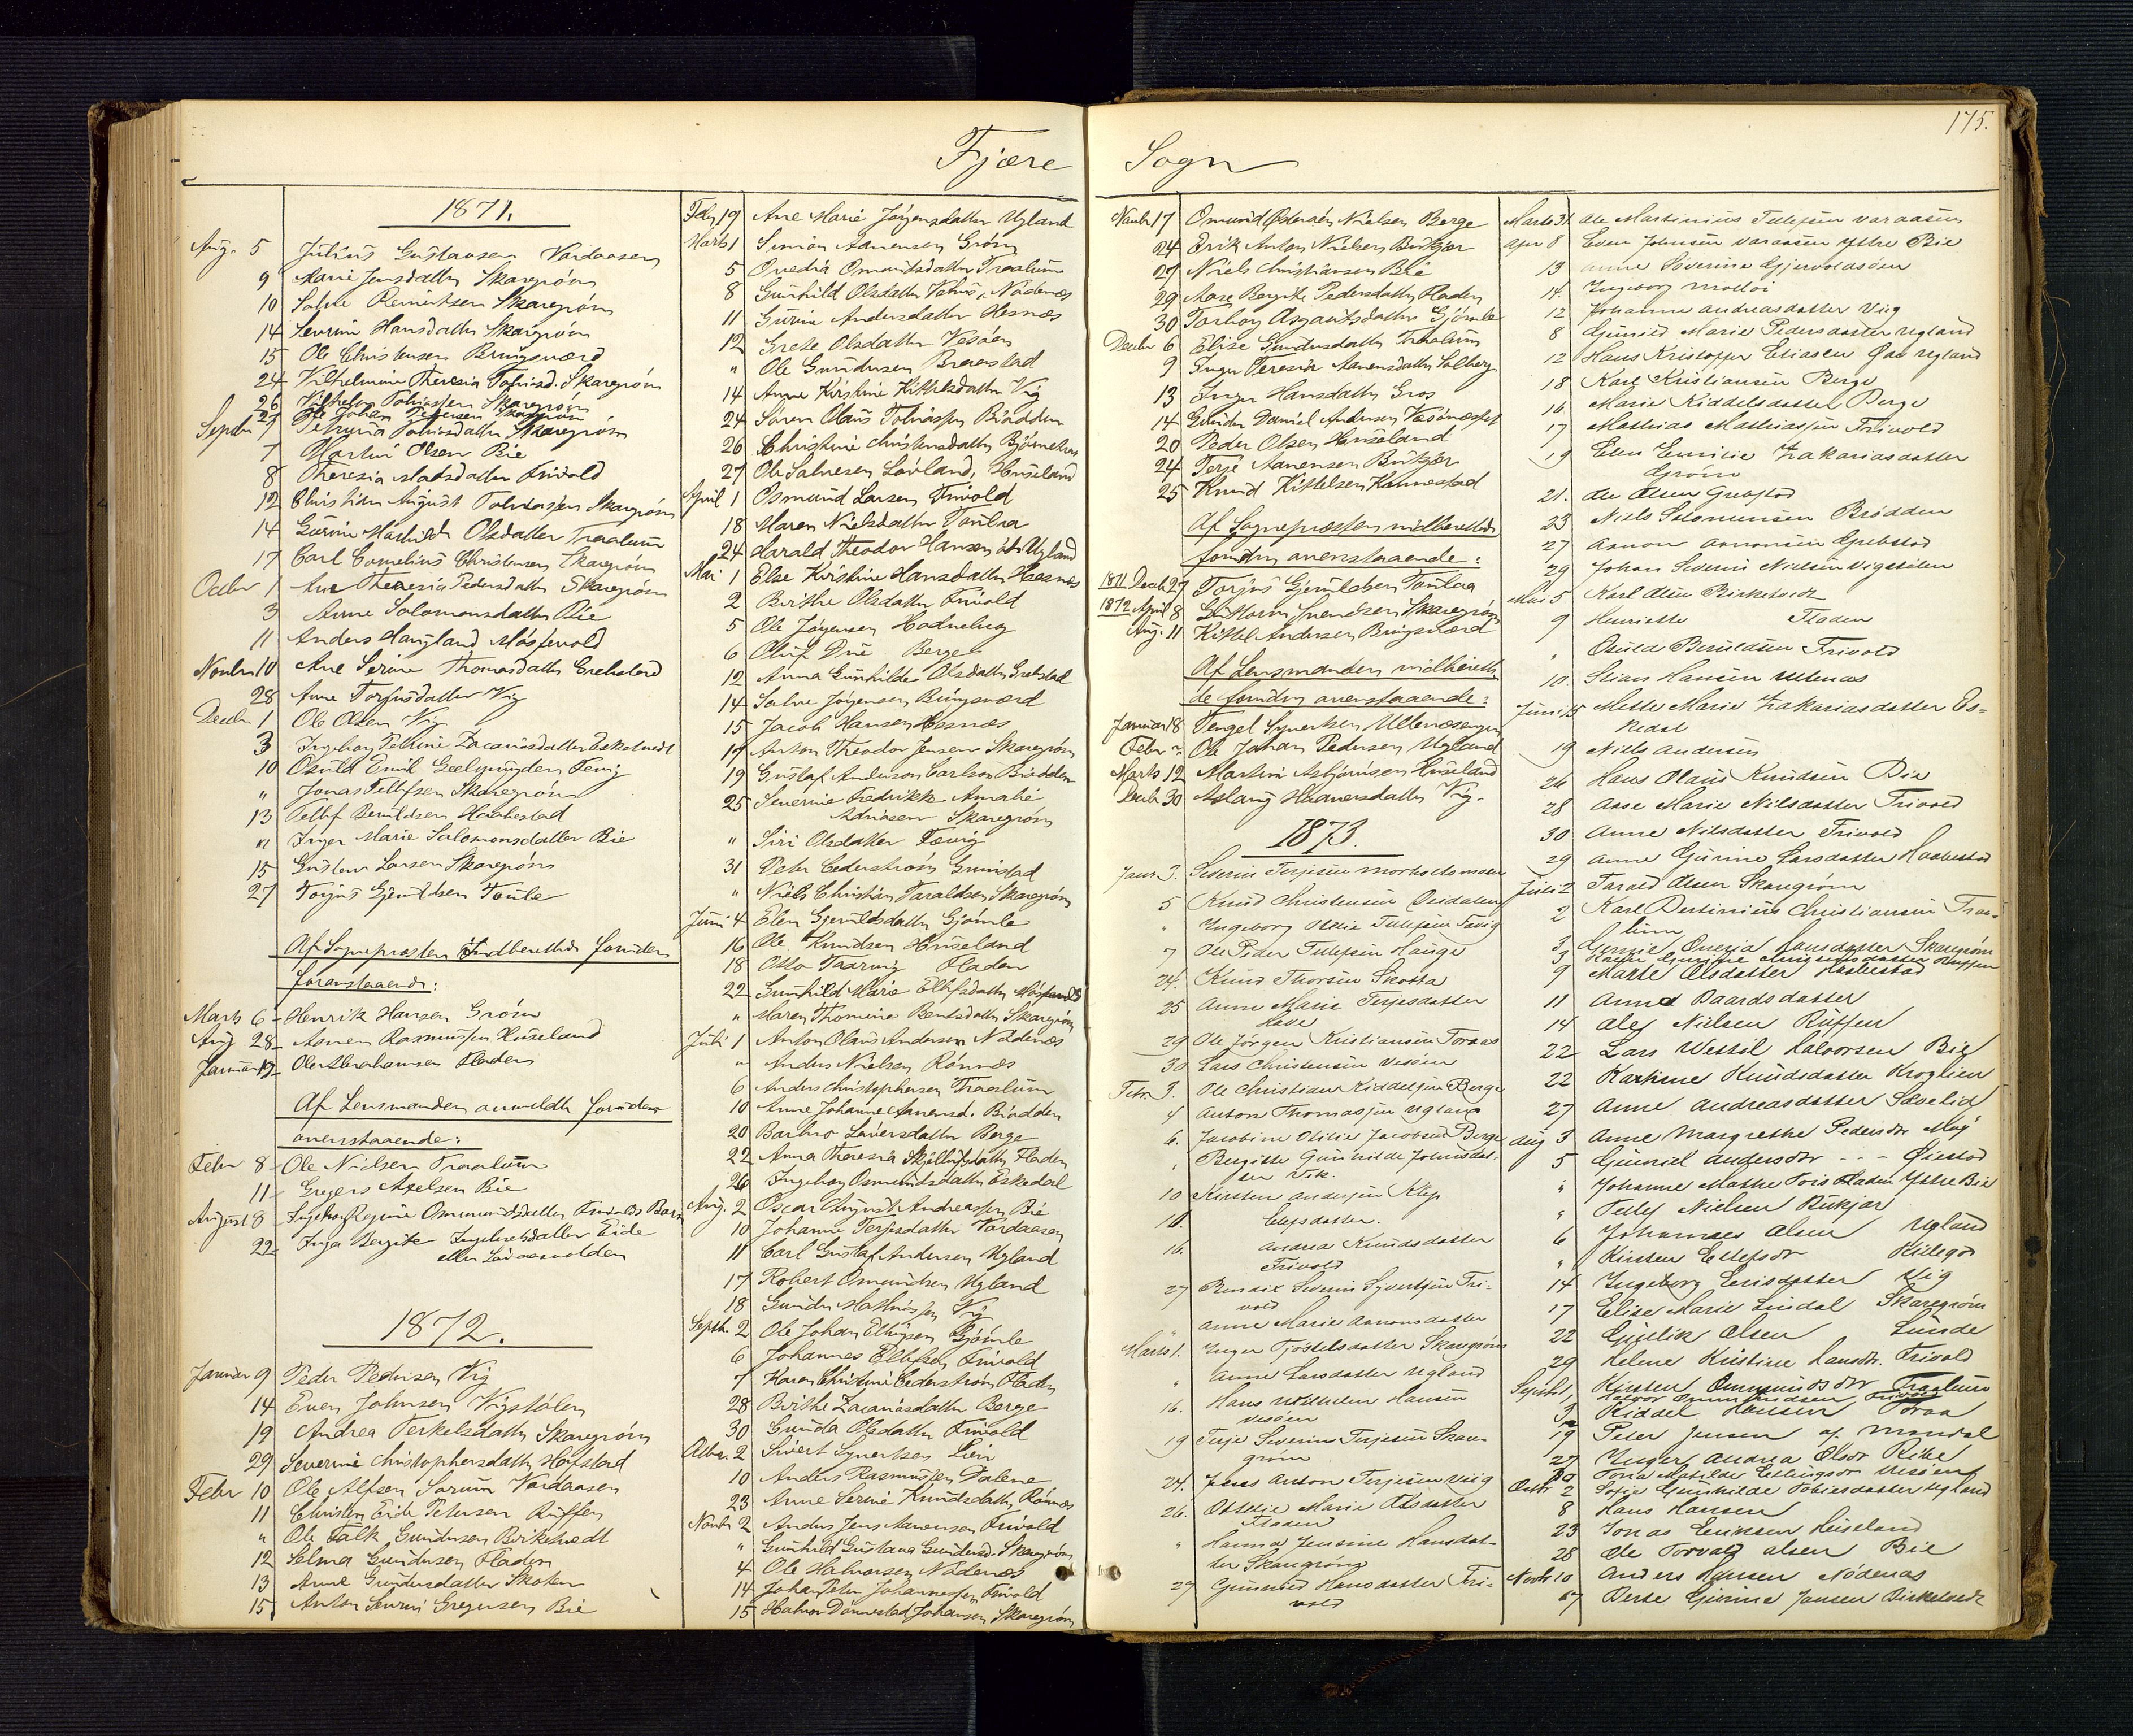 175.
Fjære Sogn
1871.
Aug. 5 Julius Gustavsen Vardaasen
9 Marie Jensdatter Skaregrøm
10 Salve Reinertsen Skaregrøm
14 Severine Hansdatter Skaregrøm
15 Ole Christensen Bringsværd
24 Vilhelmine Theresia Tobiasd. Skaregrøm
26 Vilhelm Tobiassen Skaregrøm
27 Ole Johan Pedersen Skaregrøm
Septbr 1 Petruna Tobiasdatter Skaregrøm
7 Martin Olsen Bie
8 Theresia Madsdatter Frivold
12 Christian August Tobiassen Skaregrøm
14 Gurine Mathilde Olsdatter Traalum
17 Carl Cornelius Christensen Skaregrøm
Octbr 1 Ane Theresia Pedersdatter Skaregrøm
3 Anne Salomonsdatter Bie
11 Anders Haugland
Novbr 10 Ane Serine Thomasdatter Grebstad
28 Anne Torjusdatter Vig
Decbr 1 Ole Olsen Vig
3 Ingeborg Petrine Zacariasdatter Eskedal
10 Osuld Emil Geelmuyden Fevig
" Jonas Tellefsen Skaregrøm
13 Tellef Beruldsen Haabestad
" Inger Marie Salomonsdatter Bie
15 Gustav Larsen Skaregrøm
27 Torjus Gjerulfsen Toule
Af Sognepræsten Indberettede forinden
foranstaaende:
Marts 6 Henrik Hansen Grøm
Aug 28 Aanen Rasmussen Huseland
Januar 19 Ole Abrahamsen Fladen
Af Lensmanden anmeldte forinden
ovenstaaende:
Febr 8 Ole Nielsen Traalum
11 Gregers Axelsen Bie
August 8 Ingeborg Regine Ommundsdatter Frivolds Barn
22 Inga Bergite Ingebretsdatter Eide
eller
1872.
Januar 9 Peder Pedersen Vig
14 Even Johnsen Vigstølen
19 Andrea Terkelsdatter Skaregrøm
29 Severine Christophersdatter Hofstad
Febr 10 Ole Alfsen Sørum Vardaasen
11 Christen Eide Petersen Ruffen
" Ole Falk Gundersen Birketvedt
12 Selma Gundersen Fladen
13 Anne Gundersdatter Skoten
15 Anton Severin Gregersen Bie
Feby 19 Ane Marie Jørgensdatter Ugland
Marts 1 Simon Aanensen Grøm
5 Ovedia Omundsdatter Traalum
8 Gunhild Olsdatter Nødenes
11 Gurine Andersdatter Hesnæs
12 Grete Olsdatter Vesøen
" Ole Gundersen Braastad
14 Anne Kirstine Kittelsdatter Vig
24 Søren Olaus Tobiassen Brødden
26 Christine Christensdatter
27 Ole Salvesen Løvland, Huseland
April 1 Osmund Larsen Frivold
18 Maren Nielsdatter Toulva
24 Harald Theodor Hansen Ugland
Mai 1 Else Kirstine Hansdatter Hæsnæs
2 Birthe Olsdatter Frivold
5 Ole Jørgensen
6 Oluf Due Berge
12 Anna Gunhilde Olsdatter Grebstad
14 Salve Jørgensen Bringsværd
15 Jacob Hansen Hesnæs
17 Anton Theodor Jensen Skaregrøm
19 Gustaf Anderson Carlson Brødden
25 Severine Fredrikke Amalie
Adriasen Skaregrøm
" Siri Olsdatter Fævig
31 Peter Cederstrøm Grimstad
" Niels Christian Taraldsen Skaregrøm
Juni 4 Elen Gjeruldsdatter Gjømle
16 Ole Knudsen Huseland
18 Otto Taaring Fladen
22 Gunhild Marie Ellefsdatter
" Maren Thomine Berntsdatter Skaregrøm
Juli 1 Anton Olaus Andersen Nødenes
" Anders Nielsen Rønnes
6 Anders Christophersen Traalum
10 Anne Johanne Aanensd. Brødden
20 Barbro Laversdatter Berge
22 Anna Theresia Fladen
26 Ingeborg Osmundsdatter Eskedal
Aug. 2 Oscar August Andreassen Bie
10 Johanne Terjesdatter Vardaasen
11 Carl Gustaf Andersen Ugland
17 Robert Osmundsen Ugland
18 Gunder Mathiassen Vig
Septb. 2 Ole Johan Ellefsen Gjømle
6 Johannes Ellefsen Frivold
7 Karen Christine Cederstrøm Fladen
28 Birthe Zacariasdatter Berge
30 Gunda Olsdatter Frivold
Octbr. 2 Sivert Syvertsen Lien
10 Anders Rasmussen Dalene
23 Anne Serine Knudsdatter Rønnes
Novbr 2 Anders Jens Aanensen Frivold
" Gunhild Gustava Gundersd. Skaregrøm
4 Ole Halvorsen Nødenes
14 Johan Peter Johannessen Frivold
15 Halvor Dønnestad Johansen Skaregrøm
Novbr 17 Omund Nielsen Berge
24 Erik Anton Nielsen Birkjær
27 Niels Christiansen Bie
29 Aase Bergite Pedersdatter Fladen
30 Torborg Asgautsdatter Gjømle
Decbr 6 Elise Gundersdatter Traalum
9 Inger Teresia Aanensdatter Solberg
13 Inger Hansdatter Gros
14 Gunder Daniel Andersen
20 Peder Olsen Huseland
24 Terje Aanensen Birkjær
25 Knud Kittelsen Kannestad
Af Sognepræsten indberettede
forinden ovenstaaende:
1871 Decb 27 Torjus Gjerulsen Toulva
1872 April 8 Guttorm Svendsen Skaregrøm
Aug. 11 Kittel Andersen Bringsværd
Af Lensmanden indberette-
de forinden ovenstaaende:
Januar 18 Tengel Syvertsen
Febr " Ole Johan Pedersen Ugland
Marts 12 Martin Asbjørnsen Huseland
Decbr 30 Aslaug Haaversdatter Vig.
1873.
Janr 3. Severin Terjesen Morholtsmoen
5 Knud Christensen
" Ingeborg Otilie Tellefsen Fevig
7 Ole Peder Tellefsen Hauge
24. Knud Thorsen Skotta
25 Anne Marie Terjesdatter
29 Ole Jørgen Kristiansen Toraas
30 Lars Christensen Vesøen
Febr. 3. Ole Christian Kiddelsen Berge
4 Anton Thomassen Ugland
6. Jacobine Otilie Jacobsen Berge
" Bergitte Gunhilde Johnsdat-
ter Vik.
10 Kirsten Andersen Klep
16. Elefsdatter.
16. Andrea Knudsdatter
Frivold
27 Bendix Severin Syvertsen Fri-
vold
Anne Marie Aanonsdatter
Marts 1. Inger Tjøstelsdatter Skaregrøm
" Anne Larsdatter Ugland
16. Hans Wilhelm Hansen
Vesøen
19 Terje Severin Terjesen Skare-
grøm
24. Jens Anton Terjesen Viig
26. Ottilie Marie Olsdatter
Fladen
" Hanna Jensine Hansdat-
ter Skaregrøm
29 Gunhild Hansdatter Fri-
vold
Marts 31 Ole Martinius Tellefsen Varaasen
Apr 8 Even Johnsen Varaasen Ytre Bie
13 Anne Severine Gjervoldsøen
14. Ingeborg
12 Johanne Andreasdatter Viig
8 Gunild Marie Pedersdatter Ugland
12 Hans Kristoffer Eliasen Ugland
18 Karl Kristiansen Berge
16 Marie Kiddelsdatter Berge
17 Mathias Mathiassen Frivold
19 Elen Emilie Zakariasdatter
Grøm
21. Ole Olsen Grebstad
23 Niels Salomonsen Brødden
27 Aanon Aanonsen Grebstad
29 Johan Severin Nielsen Vigestølen
Mai 5 Karl Olsen Birketvedt
9 Henriette Fladen
" Osuld Beruldsen Frivold
10. Stian Hansen
Juni 15 Mette Marie Zakariasdatter Es-
kedal
19 Niels Andersen
26 Hans Olaus Knudsen Bie
28 Aase Marie Nilsdatter Frivold
30 Anne Nilsdatter Frivold
29 Anne Gurine Larsdatter Haabestad
Juli 2 Tarald Olsen Skaregrøm
2 Karl Bertinius Christiansen Traa-
lum
3 Gunnie Onezia Hansdatter Skaregrøm
3
9 Marte Olsdatter Haabestad
11 Anna Baardsdatter
14 Ole Nielsen Ruffen
22 Lars Westøl Halvorsen Bie
22 Kathrine Knudsdatter Kroglien
27 Anne Andreasdatter Sævelid
Aug 3 Anne Margrethe Pedersdtr Moy
5 Gunild Andersdtr - - - Øiestad
" Johanne Mathe Ytre Bie
" Tellef Nielsen Birkjær
6 Johannes Olsen Ugland
" Kirsten Ellefsdtr
14 Ingeborg Eerisdatter Vig
17 Elise Marie Lindal Skaregrøm
22 Gjulik Olsen Lunde
29 Helene Kristine Hansdtr. Frivold
Septbr 1, Kirsten Ommundsdtr Traalum
3 Kiddel Hansen Toraa
19 Peter Jensen af Mandal
27 Inger Andrea Olsdtr
30 Tona Matilde Ellingsdtr Vesøen
Octbr 2 Sofie Gunhilde Tobiasdatter Ugland
8 Hans Hansen
23 Jonas Eriksen Huseland
28 Ole Torvald Olsen Bie
Novbr 10 Anders Hansen Nødenæs
17 Berte Gurine Jansen Birketvedt